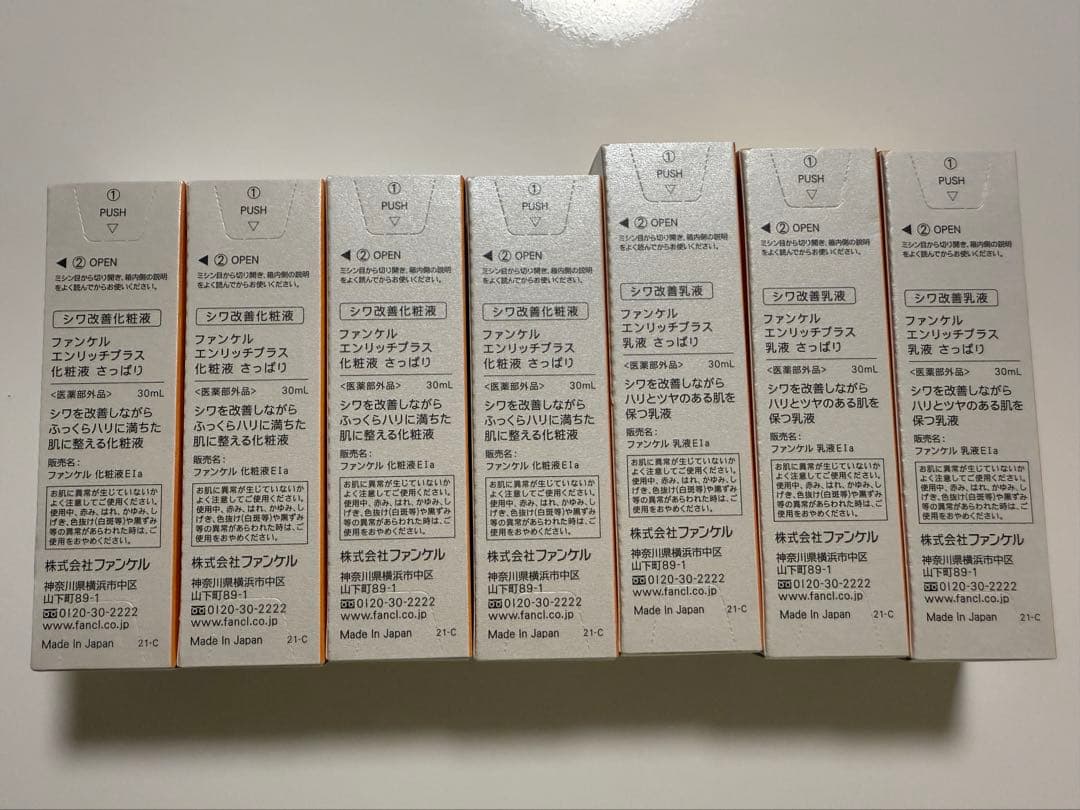 ①
PUSH
▽
◀ ② OPEN
ミシン目から切り開き、箱内側の説明
をよく読んでからお使いください。
シワ改善化粧液
ファンケル
エンリッチプラス
化粧液 さっぱり
<医薬部外品> 30mL
シワを改善しながら
ふっくらハリに満ちた
肌に整える化粧液
販売名:
ファンケル 化粧液EIa
お肌に異常が生じていないか
よく注意してご使用ください。
使用中、赤み、はれ、かゆみ、し
げき、色抜け(白斑等)や黒ずみ
等の異常があらわれた時は、ご
使用をおやめください。
株式会社ファンケル
神奈川県横浜市中区
山下町89-1
0120-30-2222
www.fancl.co.jp
Made In Japan 21-C
①
PUSH
▽
◀ ② OPEN
ミシン目から切り開き、箱内側の説明
をよく読んでからお使いください。
シワ改善化粧液
ファンケル
エンリッチプラス
化粧液 さっぱり
<医薬部外品> 30mL
シワを改善しながら
ふっくらハリに満ちた
肌に整える化粧液
販売名:
ファンケル 化粧液EIa
お肌に異常が生じていないか
よく注意してご使用ください。
使用中、赤み、はれ、かゆみ、し
げき、色抜け(白斑等)や黒ずみ
等の異常があらわれた時は、ご
使用をおやめください。
株式会社ファンケル
神奈川県横浜市中区
山下町89-1
0120-30-2222
www.fancl.co.jp
Made In Japan 21-C
①
PUSH
▽
◀ ② OPEN
ミシン目から切り開き、箱内側の説明
をよく読んでからお使いください。
シワ改善化粧液
ファンケル
エンリッチプラス
化粧液 さっぱり
<医薬部外品> 30mL
シワを改善しながら
ふっくらハリに満ちた
肌に整える化粧液
販売名:
ファンケル 化粧液EIa
お肌に異常が生じていないか
よく注意してご使用ください。
使用中、赤み、はれ、かゆみ、し
げき、色抜け(白斑等)や黒ずみ
等の異常があらわれた時は、ご
使用をおやめください。
株式会社ファンケル
神奈川県横浜市中区
山下町89-1
0120-30-2222
www.fancl.co.jp
Made In Japan 21-C
①
PUSH
▽
◀ ② OPEN
ミシン目から切り開き、箱内側の説明
をよく読んでからお使いください。
シワ改善化粧液
ファンケル
エンリッチプラス
化粧液 さっぱり
<医薬部外品> 30mL
シワを改善しながら
ふっくらハリに満ちた
肌に整える化粧液
販売名:
ファンケル 化粧液EIa
お肌に異常が生じていないか
よく注意してご使用ください。
使用中、赤み、はれ、かゆみ、し
げき、色抜け(白斑等)や黒ずみ
等の異常があらわれた時は、ご
使用をおやめください。
株式会社ファンケル
神奈川県横浜市中区
山下町89-1
0120-30-2222
www.fancl.co.jp
Made In Japan 21-C
①
PUSH
▽
◀ ② OPEN
ミシン目から切り開き、箱内側の説明
をよく読んでからお使いください。
シワ改善乳液
ファンケル
エンリッチプラス
乳液 さっぱり
<医薬部外品> 30mL
シワを改善しながら
ハリとツヤのある肌を
保つ乳液
販売名:
ファンケル 乳液EIa
お肌に異常が生じていないか
よく注意してご使用ください。
使用中、赤み、はれ、かゆみ、し
げき、色抜け(白斑等)や黒ずみ
等の異常があらわれた時は、ご
使用をおやめください。
株式会社ファンケル
神奈川県横浜市中区
山下町89-1
0120-30-2222
www.fancl.co.jp
Made In Japan 21-C
①
PUSH
▽
◀ ② OPEN
ミシン目から切り開き、箱内側の説明
をよく読んでからお使いください。
シワ改善乳液
ファンケル
エンリッチプラス
乳液 さっぱり
<医薬部外品> 30mL
シワを改善しながら
ハリとツヤのある肌を
保つ乳液
販売名:
ファンケル 乳液EIa
お肌に異常が生じていないか
よく注意してご使用ください。
使用中、赤み、はれ、かゆみ、し
げき、色抜け(白斑等)や黒ずみ
等の異常があらわれた時は、ご
使用をおやめください。
株式会社ファンケル
神奈川県横浜市中区
山下町89-1
0120-30-2222
www.fancl.co.jp
Made In Japan 21-C
①
PUSH
▽
◀ ② OPEN
ミシン目から切り開き、箱内側の説明
をよく読んでからお使いください。
シワ改善乳液
ファンケル
エンリッチプラス
乳液 さっぱり
<医薬部外品> 30mL
シワを改善しながら
ハリとツヤのある肌を
保つ乳液
販売名:
ファンケル 乳液EIa
お肌に異常が生じていないか
よく注意してご使用ください。
使用中、赤み、はれ、かゆみ、し
げき、色抜け(白斑等)や黒ずみ
等の異常があらわれた時は、ご
使用をおやめください。
株式会社ファンケル
神奈川県横浜市中区
山下町89-1
0120-30-2222
www.fancl.co.jp
Made In Japan 21-C